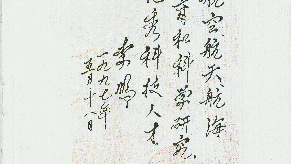 航空航天航海
育和科学研究、
秀科技人才
李鹏
一九九七年
五月十八日